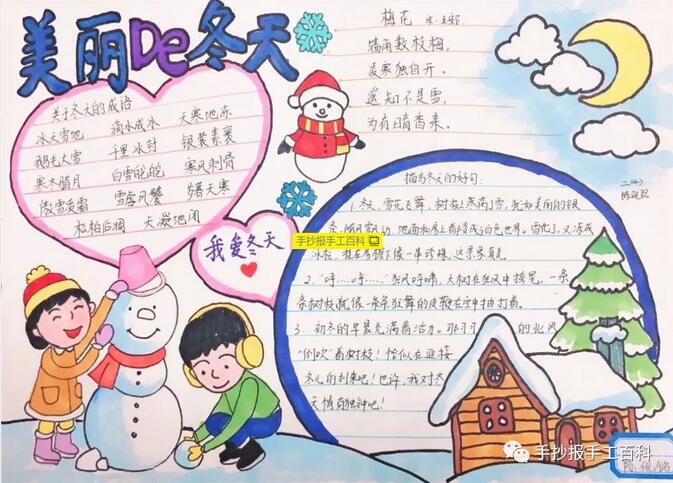 美丽De冬天
梅花 宋·王安石
墙角数枝梅，
凌寒独自开。
遥知不是雪，
为有暗香来。
关于冬天的成语
冰天雪地 滴水成冰 天寒地冻
鹅毛大雪 千里冰封 银装素裹
寒冬腊月 白雪皑皑 寒风刺骨
傲雪凌霜 雪虐风饕 岁暮天寒
松柏后凋 天凝地闭
我爱冬天
手抄报手工百科
描写冬天的好句：
1.冬天，雪花飞舞，树枝上落满了雪，犹如美丽的银
条，随风飘动，地面和房上都变成白色世界。雪化了，又冻成
冰柱，挂在房檐下像一串珍珠，这景象真美。
2."呼……呼……"狂风呼啸，大树在狂风中摇晃，一条
条树枝就像一条条狂舞的皮鞭在空中抽打着。
3.初冬的早晨充满着活力。那 的北风
"倒吹"着树枝！恰似在迎接
冬儿的到来吧！也许，我对冬
天情有独钟吧！
手抄报手工百科